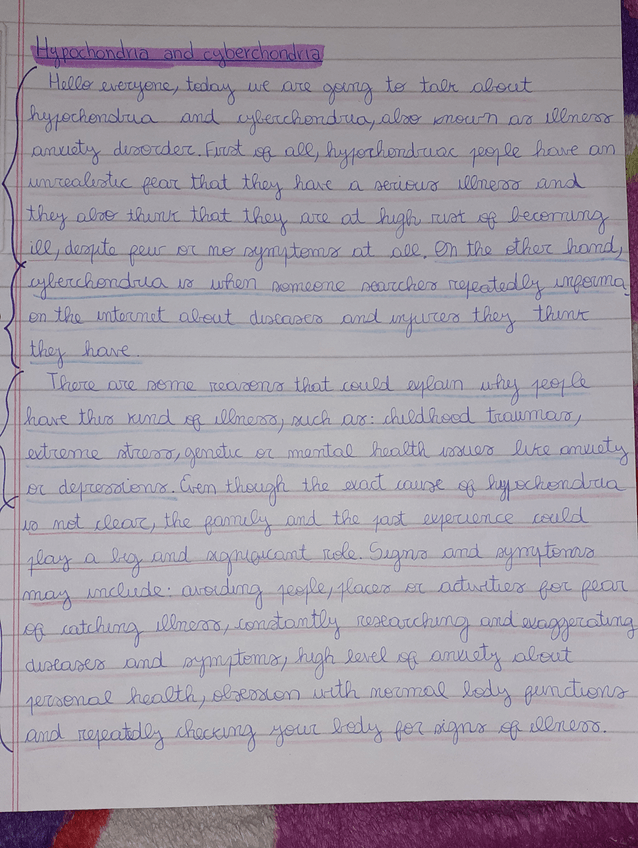 Hypochondria and cyberchondria
Hello everyone, today we are going to talk about
hypochondria and cyberchondria, also known as illness
anxiety disorder. First of all, hypochondriac people have an
unrealistic fear that they have a serious illness and
they also think that they are at high risk of becoming
ill, despite few or no symptoms at all. On the other hand,
cyberchondria is when someone searches repeatedly informa
on the internet about diseases and injures they think
they have.
There are some reasons that could explain why people
have this kind of illness, such as: childhood traumas,
extreme stress, genetic or mental health issues like anxiety
or depressions. Even though the exact cause of hypochondria
is not clear, the family and the past experience could
play a big and significant role. Signs and symptoms
may include: avoiding people, places or activities for fear
of catching illness, constantly researching and exaggerating
diseases and symptoms, high level of anxiety about
personal health, obsession with normal body functions
and repeatdly checking your body for signs of illness.